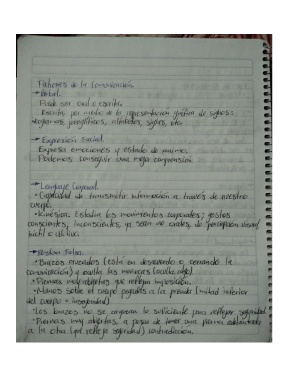 Factores de la Comunicación
→ Verbal.
Puede ser oral o escrita.
Escrita: por medio de la representación gráfica de signos:
jeroglíficos, alfabetos, siglos, etc.
→ Expresión Facial.
Expresa emociones y estado de animo.
Podemos conseguir una mejor comprensión
→ Lenguaje Corporal.
• Capacidad de transmitir información a través de nuestro
cuerpo.
• Kinesica: Estudia los movimientos corporales; gestos
conscientes, inconscientes, ya sean no orales, de percepción visual
táctil o auditiva.
• Brazos cruzados (esta en desacuerdo o cerrando la
comunicación) y oculta las manos (oculta algo).
• Piernas muy abiertas que reflejan imposición.
• Manos sobre el cuerpo pegados a la prenda (mitad inferior
del cuerpo = inseguridad)
• Los brazos no se separan lo suficiente para reflejar seguridad.
• Piernas muy abiertas, a pesar de tener una pierna adelantada
a la otra (que refleja seguridad) contradicción.